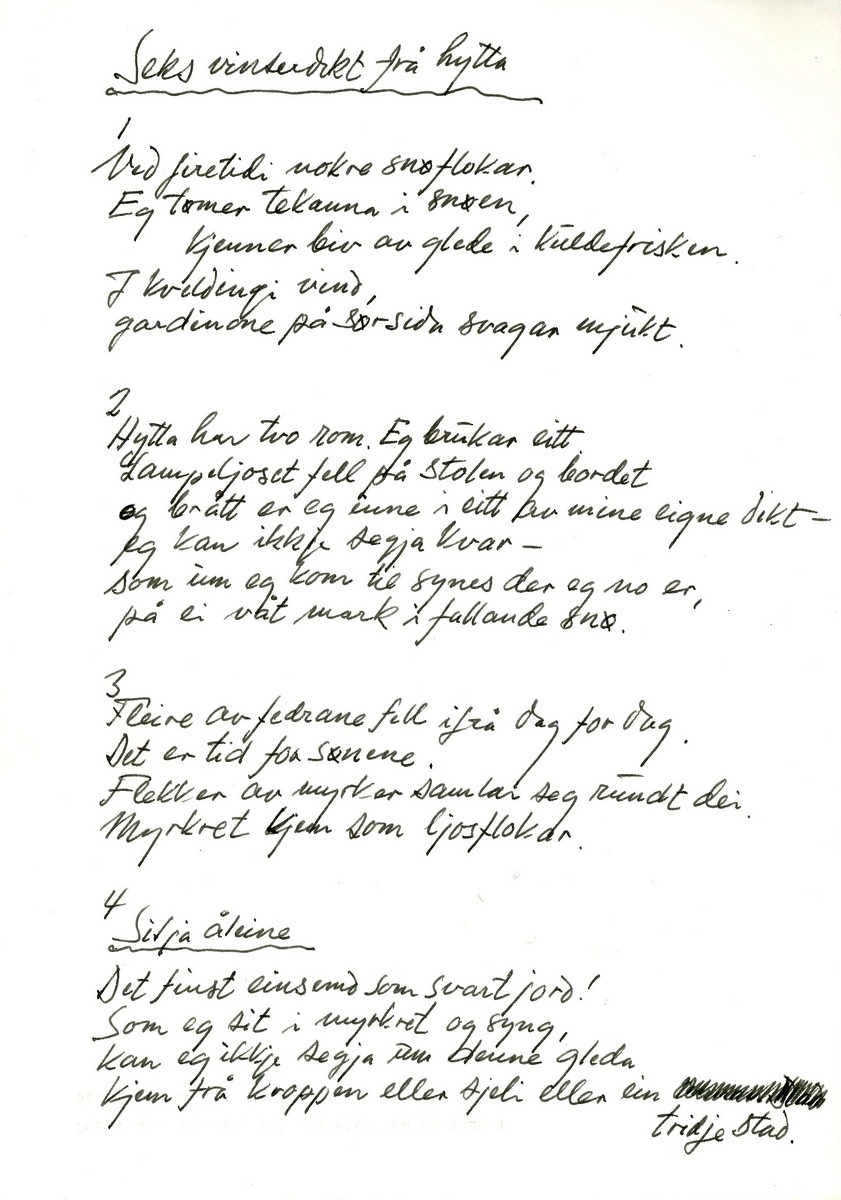 Seks vinterdikt frå hytta
1
Ved firetidi nokre snøflokar.
Eg tømer tekanna i snøen,
kjenner eiv av glede i kuldefrisken.
I kveldingi vind,
gardinone på sørsida svagar mjukt.
2
Hytta har tvo rom. Eg brukar eitt
Lampeljoset fell på stolen og bordet
og brått er eg inne i eitt av mine eigne dikt –
eg kan ikkje segja kvar –
som um eg kom til synes der eg no er,
på ei våt mark i fallande snø.
3
Fleire av fedrane fell ifrå dag for dag.
Det er tid for sønene.
Flekker av myrker samlar seg rundt dei.
Myrkret kjem som ljosflokar.
4
Sitja åleine
Det finst einsemd som svart jord!
Som eg sit i myrkret og syng,
kan eg ikkje segja um denne gleda
kjem frå kroppen eller sjeli eller ein
tridje stad.